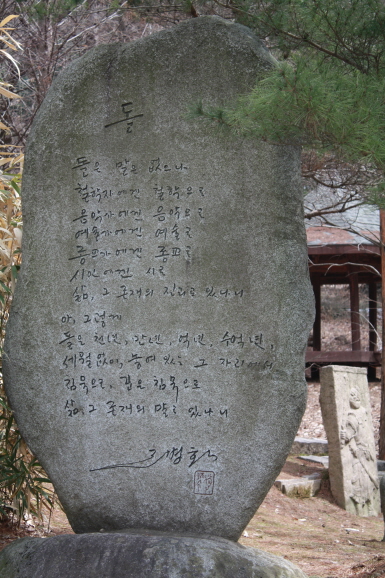 돌
돌은 말은 없으나
철학자에겐 철학으로
음악가에겐 음악으로
예술가에겐 예술로
종교가에겐 종교로
시인에겐 시로
삶, 그 존재의 진리로 있나니
아, 그렇게
돌은 천년, 만년, 억년, 수억년,
세월없이, 놓여 있는 그 자리에서
침묵으로, 깊은 침묵으로
삶, 그 존재의 말로 있나니
조병화